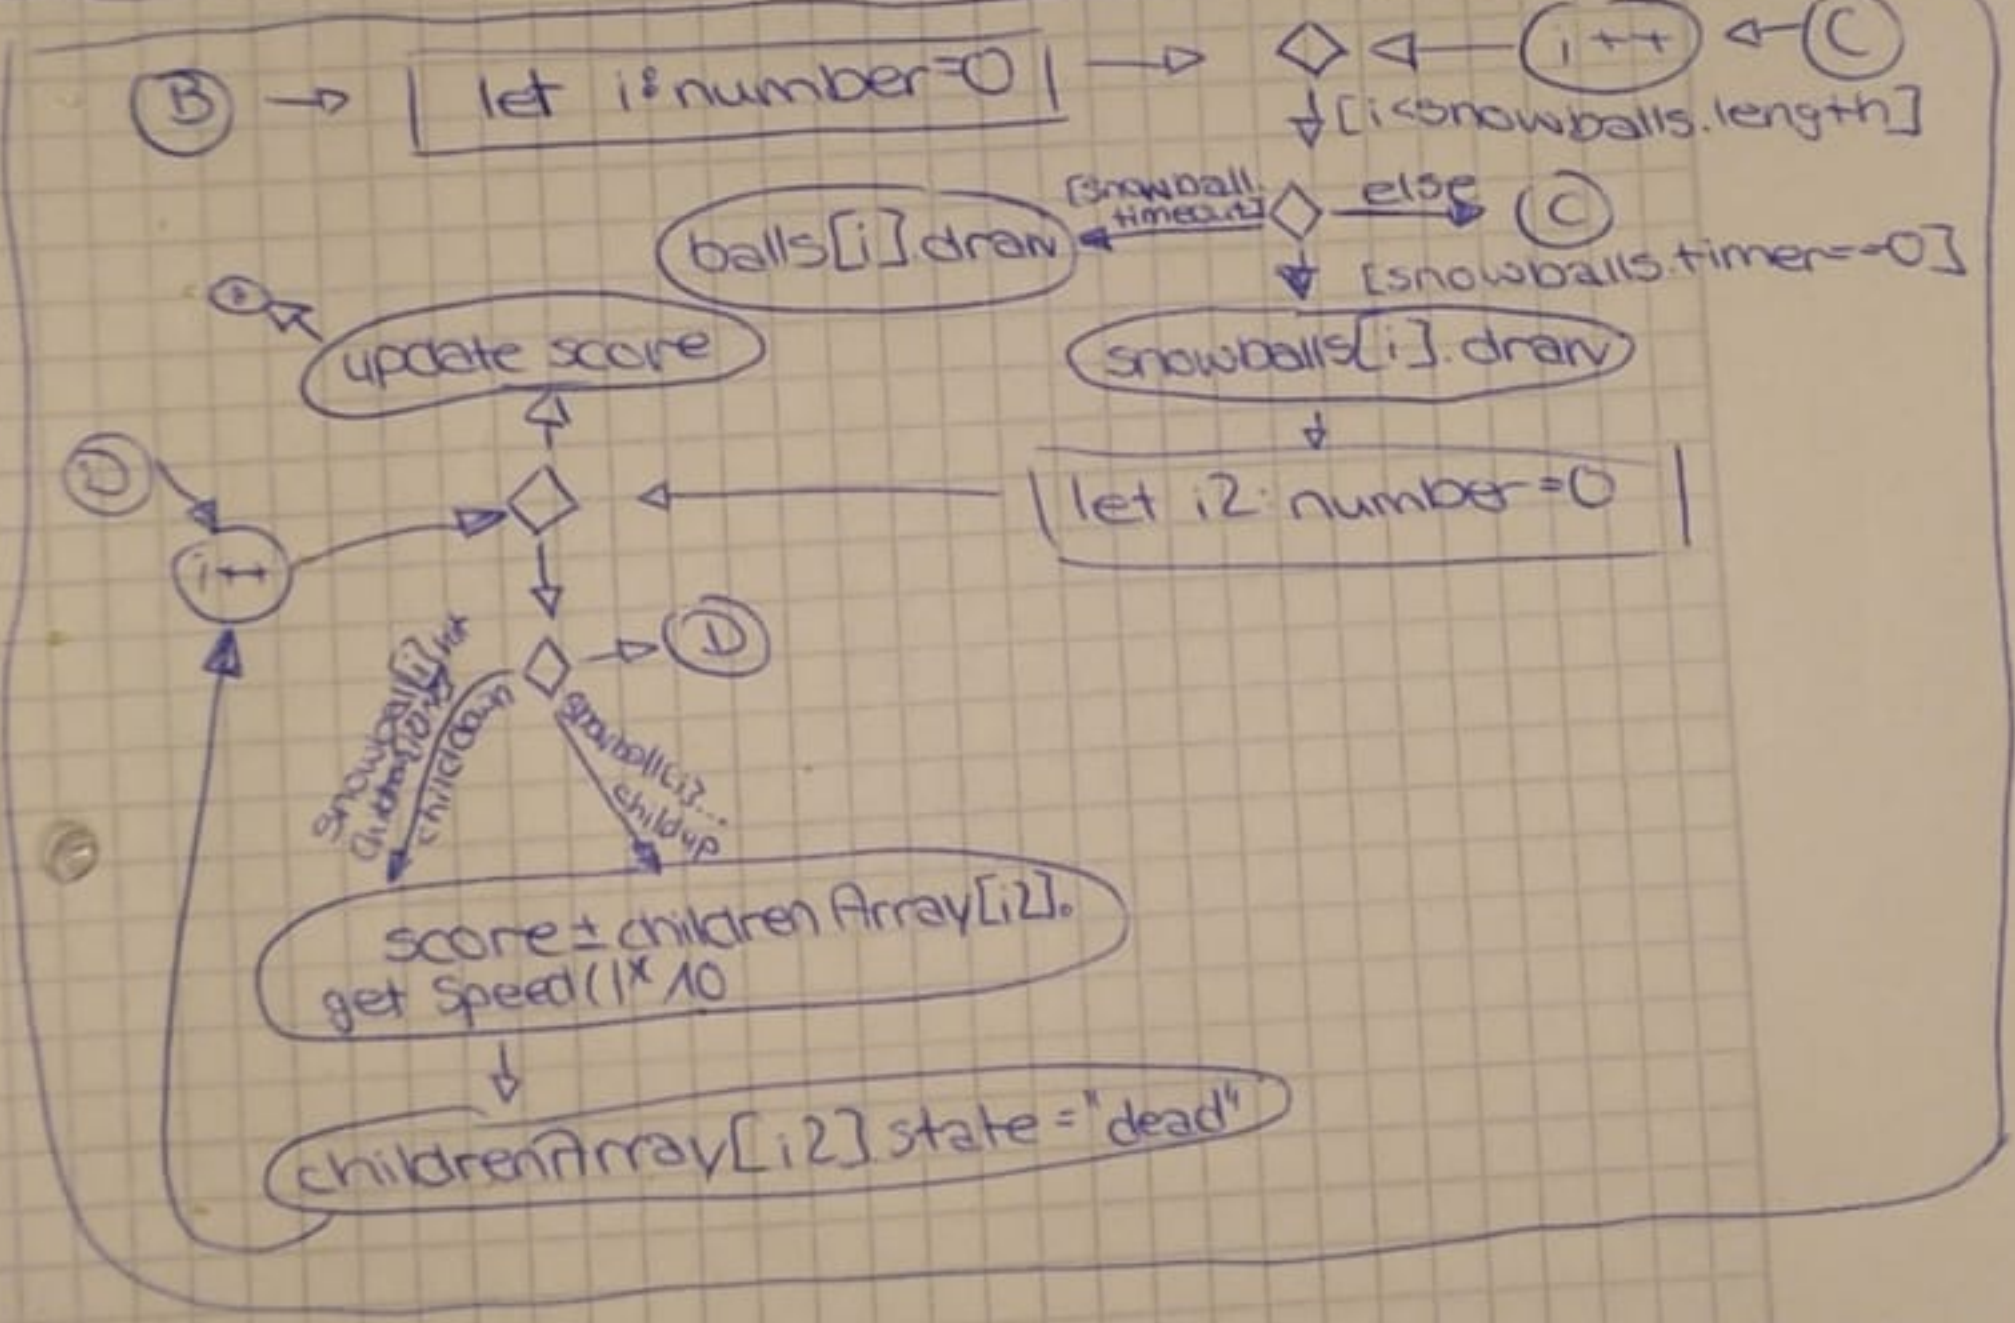 B
let i: number=0
i++
C
[i<snowballs.length]
[snowball.
timeout]
else
C
balls[i].draw
[snowballs.timer==0]
update score
snowballs[i].draw
D
let i2: number=0
i++
D
snowball[i] hit
childdown
snowball[i]...
childup
score ± childrenArray[i2].
get Speed()* 10
childrenArray[i2] state = "dead"